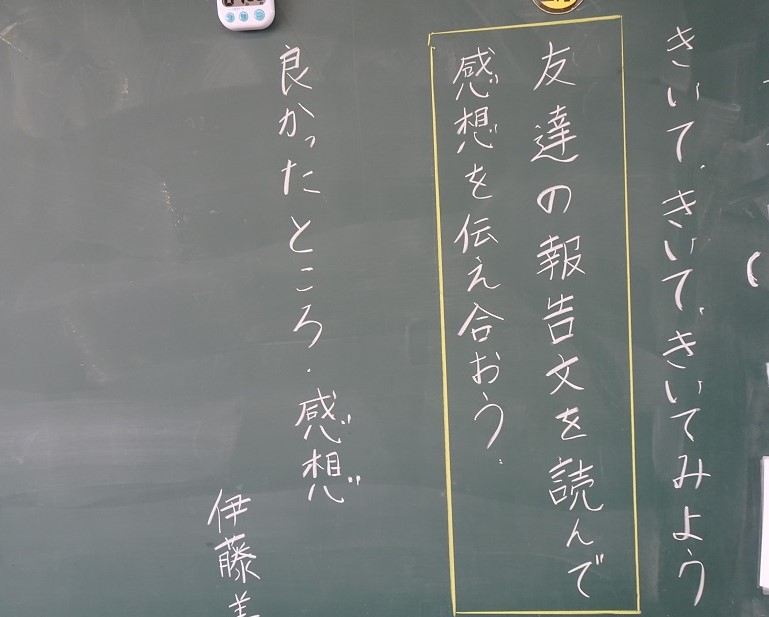 きいて、きいて、きいてみよう
友達の報告文を読んで
感想を伝え合おう。
良かったところ・感想
伊藤